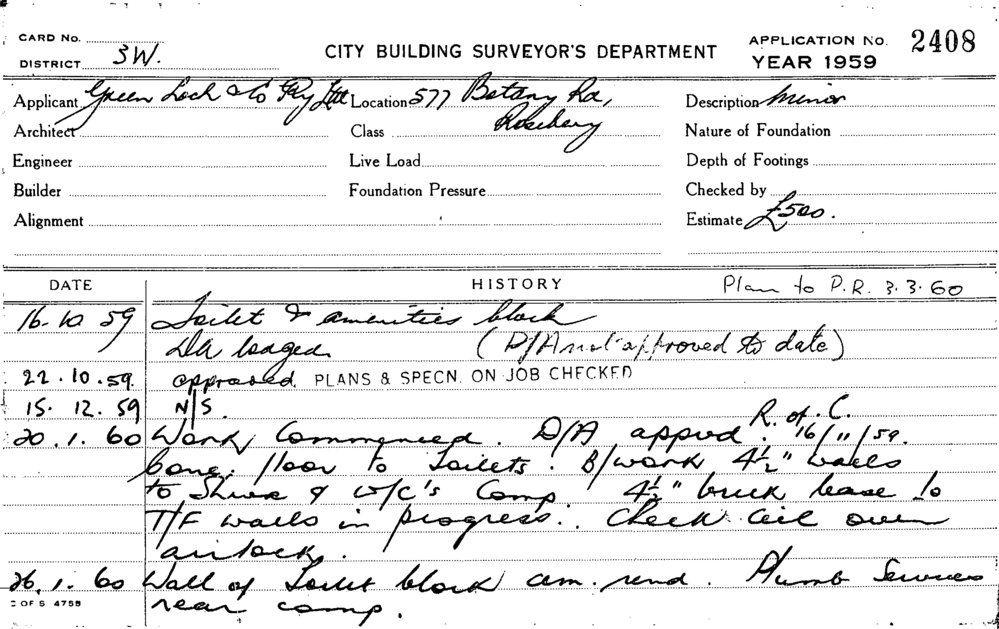 CARD No.
DISTRICT 3W.
CITY BUILDING SURVEYOR'S DEPARTMENT
APPLICATION No. 2408
YEAR 1959
Applicant Green Lock & Co Pty Ltd Location 577 Botany Rd, Description Minor
Architect Class Rosebery Nature of Foundation
Engineer Live Load Depth of Footings
Builder Foundation Pressure Checked by
Alignment Estimate £500.
DATE HISTORY Plan to P.R. 3.3.60
16.10 59 Toilet & amenities block
DA lodged (D/A not approved to date)
22.10.59. approved PLANS & SPECN. ON JOB CHECKED
15. 12. 59 N/S.
20.1.60 Work Commenced. D/A apprvd R. of. C. 16/11/59.
Conc: floor to Toilets. B/work 4½" walls
to & W/C's Comp 4½" brick base to
T/F walls in progress. Check ceil over
airlock.
26.1.60 Wall of Toilet block cem. rend. Plumb Services
rear comp.
OF S 4755